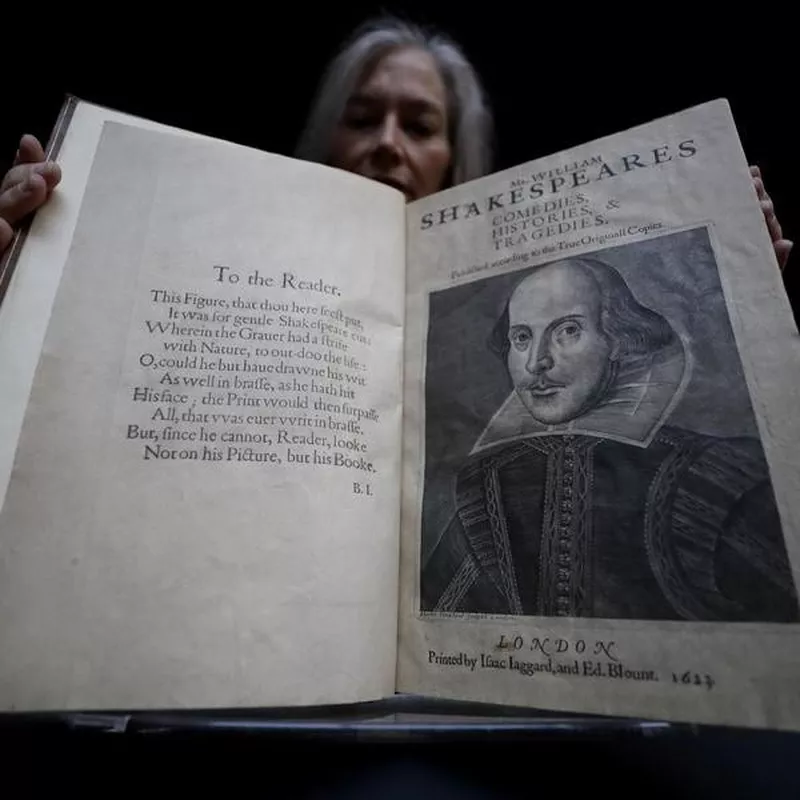 To the Reader.
This Figure, that thou here seest put,
It was for gentle Shakespeare cut;
Wherein the Grauer had a strife
with Nature, to out-doo the life:
O, could he but haue drawne his wit
As well in brasse, as he hath hit
His face; the Print would then surpasse
All, that vvas euer vvrit in brasse.
But, since he cannot, Reader, looke
Not on his Picture, but his Booke.
B. I.
Mr. WILLIAM
SHAKESPEARES
COMEDIES,
HISTORIES, &
TRAGEDIES.
Published according to the True Originall Copies.
LONDON
Printed by Isaac Iaggard, and Ed. Blount. 1623